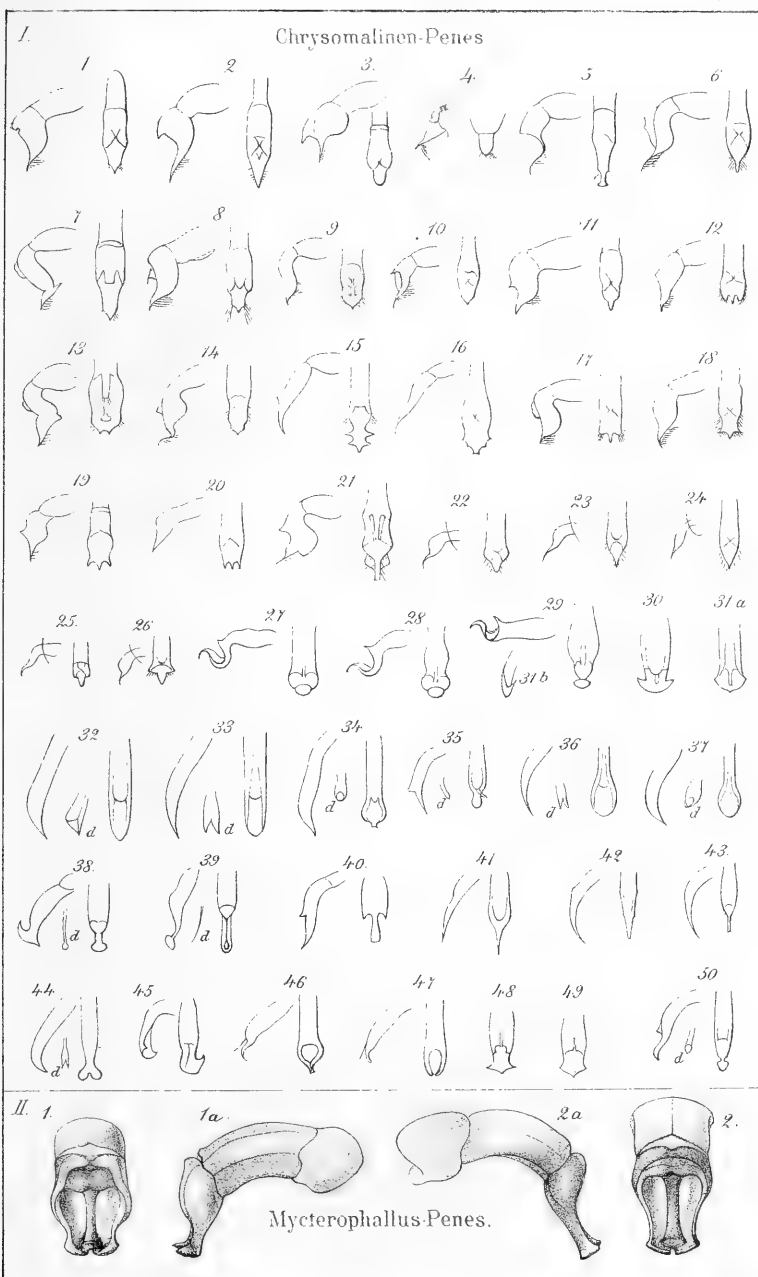 I. Chrysomalinen-Penes
1 2 3. 4. 5 6
7 8 9 10 11 12
13 14 15 16 17 18
19 20 21 22 23 24
25. 26 27 28 29 30 31a
31b
32 33 34 35 36 37
d d d d d d
38. 39 40. 41 42 43.
d d
44 45 46 47 48 49 50
d d
II. 1. 1a. 2a 2.
Mycterophallus-Penes.